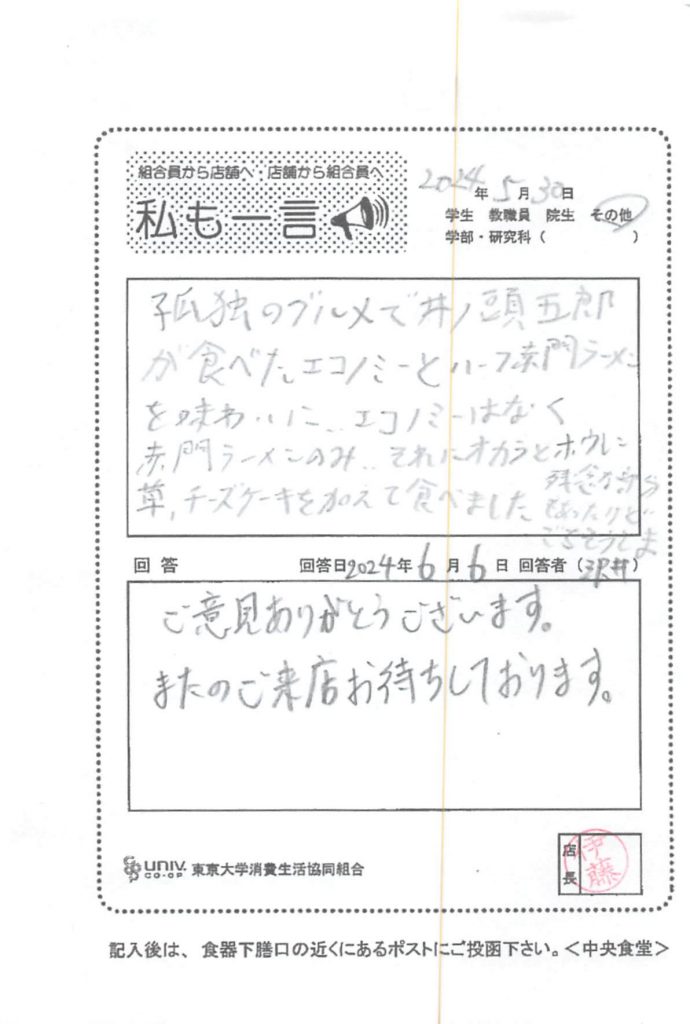 組合員から店舗へ・店舗から組合員へ
私も一言
2024年5月30日
学生 教職員 院生 その他
学部・研究科（ ）
孤独のグルメで井ノ頭五郎
が食べたエコノミーとハーフ赤門ラーメン
を味わいに、、エコノミーはなく
赤門ラーメンのみ、、それにオカラとホウレン
草、チーズケーキを加えて食べました
残念ながら
ごちそうさま
回答 回答日2024年6月6日 回答者（沢井）
ご意見ありがとうございます。
またのご来店お待ちしております。
UNIV. CO-OP 東京大学消費生活協同組合
店長 伊藤
記入後は、食器下膳口の近くにあるポストにご投函下さい。＜中央食堂＞